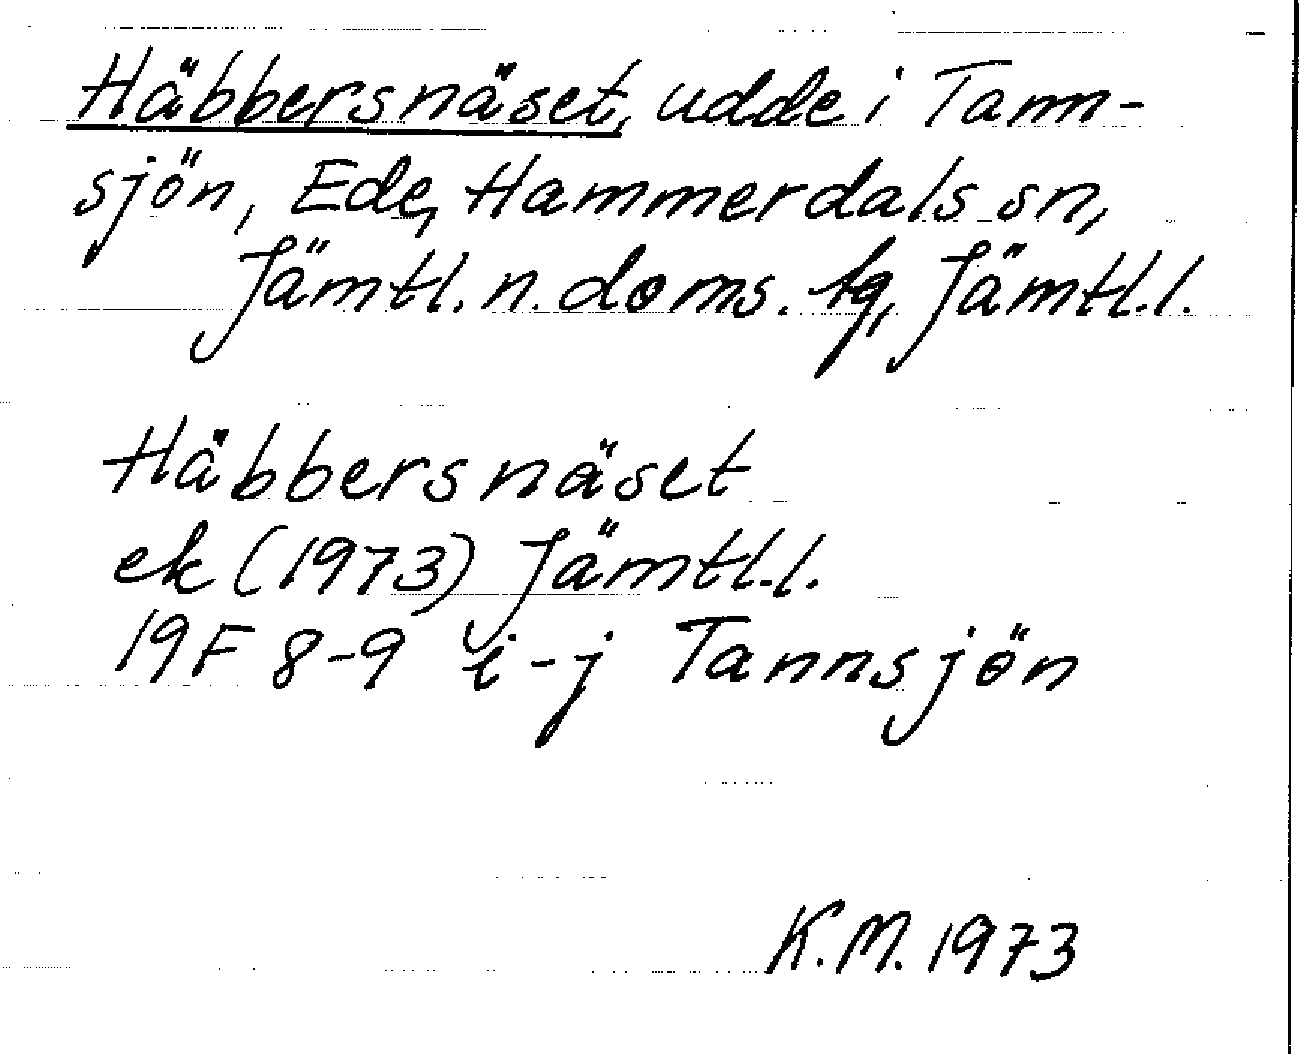 Häbbersnäset, udde i Tann-
sjön, Ede, Hammerdals sn,
Jämtl. n. doms. tg, Jämtl. l.
Häbbersnäset
ek (1973) Jämtl. l.
19F 8-9 i-j Tannsjön
K.M. 1973